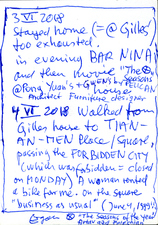 3 VI 2018
Stayed home (=@ Gilles'
too exhausted.
in evening BAR NINA
and then movie "The ⊗ Seasons
@ Pong Yuan's + GWEN's by PELICAN
Architect Furniture designer house
4 VI 2018 Walked from
Gilles house to TIAN-
AN-MEN Place/Square,
passing the FORBIDDEN CITY
(which was forbidden = closed
on MONDAY) A woman rented
a bike for me. On the square
"business as usual" (June 4, 1989!)
⊗ "The Seasons of the year"